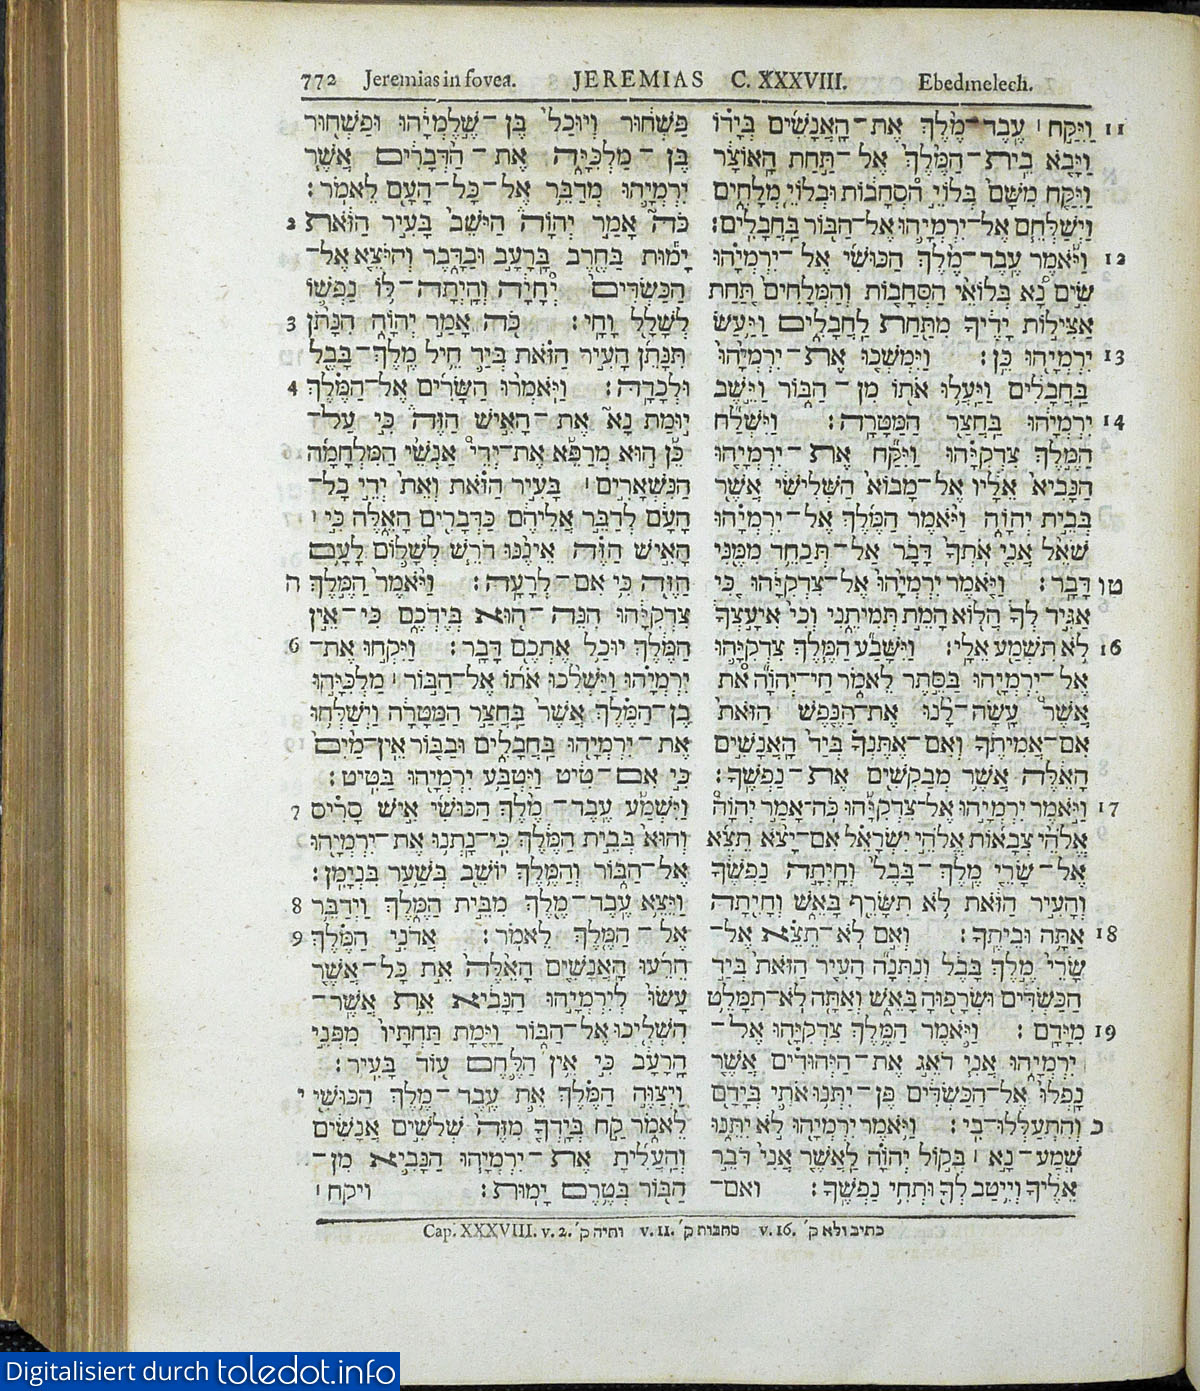 772 Jeremias in fovea. JEREMIAS C. XXXVIII. Ebedmelech.
פַּשְׁחוּר וְיוּכַל בֶּן־שֶׁלֶמְיָהוּ וּפַשְׁחוּר
בֶּן־מַלְכִּיָּה אֶת־הַדְּבָרִים אֲשֶׁר
יִרְמְיָהוּ מְדַבֵּר אֶל־כָּל־הָעָם לֵאמֹר׃
2 כֹּה אָמַר יְהוָֹה הַיּשֵׁב בָּעִיר הַזֹּאת
יָמוּת בַּחֶרֶב בָּרָעָב וּבַדָּבֶר וְהַיּצֵא אֶל־
הַכַּשְׂדִּים יְחָיֶה וְהָיְתָה־לּוֹ נַפְשׁוֹ
3 לְשָׁלָל וָחָי׃ כֹּה אָמַר יְהוָֹה הִנָּתֹן
תִּנָּתֵן הָעִיר הַזֹּאת בְּיַד חֵיל מֶלֶךְ־בָּבֶל
4 וּלְכָדָהּ׃ וַיֹּאמְרוּ הַשָּׂרִים אֶל־הַמֶּלֶךְ
יוּמַת נָא אֶת־הָאִישׁ הַזֶּה כִּי עַל־
כֵּן הוּא מְרַפֵּא אֶת־יְדֵי אַנְשֵׁי הַמִּלְחָמָה
הַנִּשְׁאָרִים׀ בָּעִיר הַזֹּאת וְאֵת יְדֵי כָל־
הָעָם לְדַבֵּר אֲלֵיהֶם כַּדְּבָרִים הָאֵלֶּה כִּי׀
הָאִישׁ הַזֶּה אֵינֶנּוּ דֹרֵשׁ לְשָׁלוֹם לָעָם
ה הַזֶּה כִּי אִם־לְרָעָה׃ וַיֹּאמֶר הַמֶּלֶךְ
צִדְקִיָּהוּ הִנֵּה־הוּא בְּיֶדְכֶם כִּי־אֵין
6 הַמֶּלֶךְ יוּכַל אֶתְכֶם דָּבָר׃ וַיִּקְחוּ אֶת־
יִרְמְיָהוּ וַיַּשְׁלִכוּ אֹתוֹ אֶל־הַבּוֹר׀ מַלְכִּיָּהוּ
בֶן־הַמֶּלֶךְ אֲשֶׁר בַּחֲצַר הַמַּטָּרָה וַיְשַׁלְּחוּ
אֶת־יִרְמְיָהוּ בַּחֲבָלִים וּבַבּוֹר אֵין־מַיִם
כִּי אִם־טִיט וַיִּטְבַּע יִרְמְיָהוּ בַּטִּיט׃
7 וַיִּשְׁמַע עֶבֶד־מֶלֶךְ הַכּוּשִׁי אִישׁ סָרִיס
וְהוּא בְּבֵית הַמֶּלֶךְ כִּי־נָתְנוּ אֶת־יִרְמְיָהוּ
אֶל־הַבּוֹר וְהַמֶּלֶךְ יוֹשֵׁב בְּשַׁעַר בִּנְיָמִן׃
8 וַיֵּצֵא עֶבֶד־מֶלֶךְ מִבֵּית הַמֶּלֶךְ וַיְדַבֵּר
9 אֶל־הַמֶּלֶךְ לֵאמֹר׃ אֲדֹנִי הַמֶּלֶךְ
הֵרֵעוּ הָאֲנָשִׁים הָאֵלֶּה אֵת כָּל־אֲשֶׁר
עָשׂוּ לְיִרְמְיָהוּ הַנָּבִיא אֵת אֲשֶׁר־
הִשְׁלִיכוּ אֶל־הַבּוֹר וַיָּמָת תַּחְתָּיו מִפְּנֵי
הָרָעָב כִּי אֵין הַלֶּחֶם עוֹד בָּעִיר׃
י וַיְצַוֶּה הַמֶּלֶךְ אֵת עֶבֶד־מֶלֶךְ הַכּוּשִׁי
לֵאמֹר קַח בְּיָדְךָ מִזֶּה שְׁלֹשִׁים אֲנָשִׁים
וְהַעֲלִיתָ אֶת־יִרְמְיָהוּ הַנָּבִיא מִן־
הַבּוֹר בְּטֶרֶם יָמוּת׃ ויקח׀
11 וַיִּקַּח׀ עֶבֶד־מֶלֶךְ אֶת־הָאֲנָשִׁים בְּיָדוֹ
וַיָּבֹא בֵית־הַמֶּלֶךְ אֶל־תַּחַת הָאוֹצָר
וַיִּקַּח מִשָּׁם בְּלוֹיֵ הסְּחָבוֹת וּבְלוֹיֵ מְלָחִים
וַיְשַׁלְּחֵם אֶל־יִרְמְיָהוּ אֶל־הַבּוֹר בַּחֲבָלִים׃
12 וַיֹּאמֶר עֶבֶד־מֶלֶךְ הַכּוּשִׁי אֶל־יִרְמְיָהוּ
שִׂים נָא בְּלוֹאֵי הַסְּחָבוֹת וְהַמְּלָחִים תַּחַת
אַצִּילוֹת יָדֶיךָ מִתַּחַת לַחֲבָלִים וַיַּעַשׂ
13 יִרְמְיָהוּ כֵּן׃ וַיִּמְשְׁכוּ אֶת־יִרְמְיָהוּ
בַּחֲבָלִים וַיַּעֲלוּ אֹתוֹ מִן־הַבּוֹר וַיֵּשֶׁב
14 יִרְמְיָהוּ בַּחֲצַר הַמַּטָּרָה׃ וַיִּשְׁלַח
הַמֶּלֶךְ צִדְקִיָּהוּ וַיִּקַּח אֶת־יִרְמְיָהוּ
הַנָּבִיא אֵלָיו אֶל־מָבוֹא הַשְּׁלִישִׁי אֲשֶׁר
בְּבֵית יְהוָֹה וַיֹּאמֶר הַמֶּלֶךְ אֶל־יִרְמְיָהוּ
שֹׁאֵל אֲנִי אֹתְךָ דָּבָר אַל־תְּכַחֵד מִמֶּנִּי
טו דָּבָר׃ וַיֹּאמֶר יִרְמְיָהוּ אֶל־צִדְקִיָּהוּ כִּי
אַגִּיד לְךָ הֲלוֹא הָמֵת תְּמִיתֵנִי וְכִי אִיעָצְךָ
16 לֹא תִשְׁמַע אֵלָי׃ וַיִּשָּׁבַע הַמֶּלֶךְ צִדְקִיָּהוּ
אֶל־יִרְמְיָהוּ בַּסֵּתֶר לֵאמֹר חַי־יְהוָֹה את
אֲשֶׁר עָשָׂה־לָנוּ אֶת־הַנֶּפֶשׁ הַזֹּאת
אִם־אֲמִיתֶךָ וְאִם־אֶתֶּנְךָ בְּיַד הָאֲנָשִׁים
הָאֵלֶּה אֲשֶׁר מְבַקְשִׁים אֶת־נַפְשֶׁךָ׃
17 וַיֹּאמֶר יִרְמְיָהוּ אֶל־צִדְקִיָּהוּ כֹּה־אָמַר יְהוָֹה
אֱלֹהֵי צְבָאוֹת אֱלֹהֵי יִשְׂרָאֵל אִם־יָצֹא תֵצֵא
אֶל־שָׂרֵי מֶלֶךְ־בָּבֶל וְחָיְתָה נַפְשֶׁךָ
וְהָעִיר הַזֹּאת לֹא תִשָּׂרֵף בָּאֵשׁ וְחָיִתָה
18 אַתָּה וּבֵיתֶךָ׃ וְאִם לֹא־תֵצֵא אֶל־
שָׂרֵי מֶלֶךְ בָּבֶל וְנִתְּנָה הָעִיר הַזֹּאת בְּיַד
הַכַּשְׂדִּים וּשְׂרָפוּהָ בָּאֵשׁ וְאַתָּה לֹא־תִמָּלֵט
19 מִיָּדָם׃ וַיֹּאמֶר הַמֶּלֶךְ צִדְקִיָּהוּ אֶל־
יִרְמְיָהוּ אֲנִי דֹאֵג אֶת־הַיְּהוּדִים אֲשֶׁר
נָפְלוּ אֶל־הַכַּשְׂדִּים פֶּן־יִתְּנוּ אֹתִי בְּיָדָם
כ וְהִתְעַלְּלוּ־בִי׃ וַיֹּאמֶר יִרְמְיָהוּ לֹא יִתֵּנוּ
שְׁמַע־נָא׀ בְּקוֹל יְהוָֹה לַאֲשֶׁר אֲנִי דֹּבֵר
אֵלֶיךָ וְיִיטַב לְךָ וּתְחִי נַפְשֶׁךָ׃ ואם־
Cap. XXXVIII. v. 2. וחיה ק׳ v. 11. סחבות ק׳ v. 16. כתיב ולא ק׳
Digitalisiert durch toledot.info